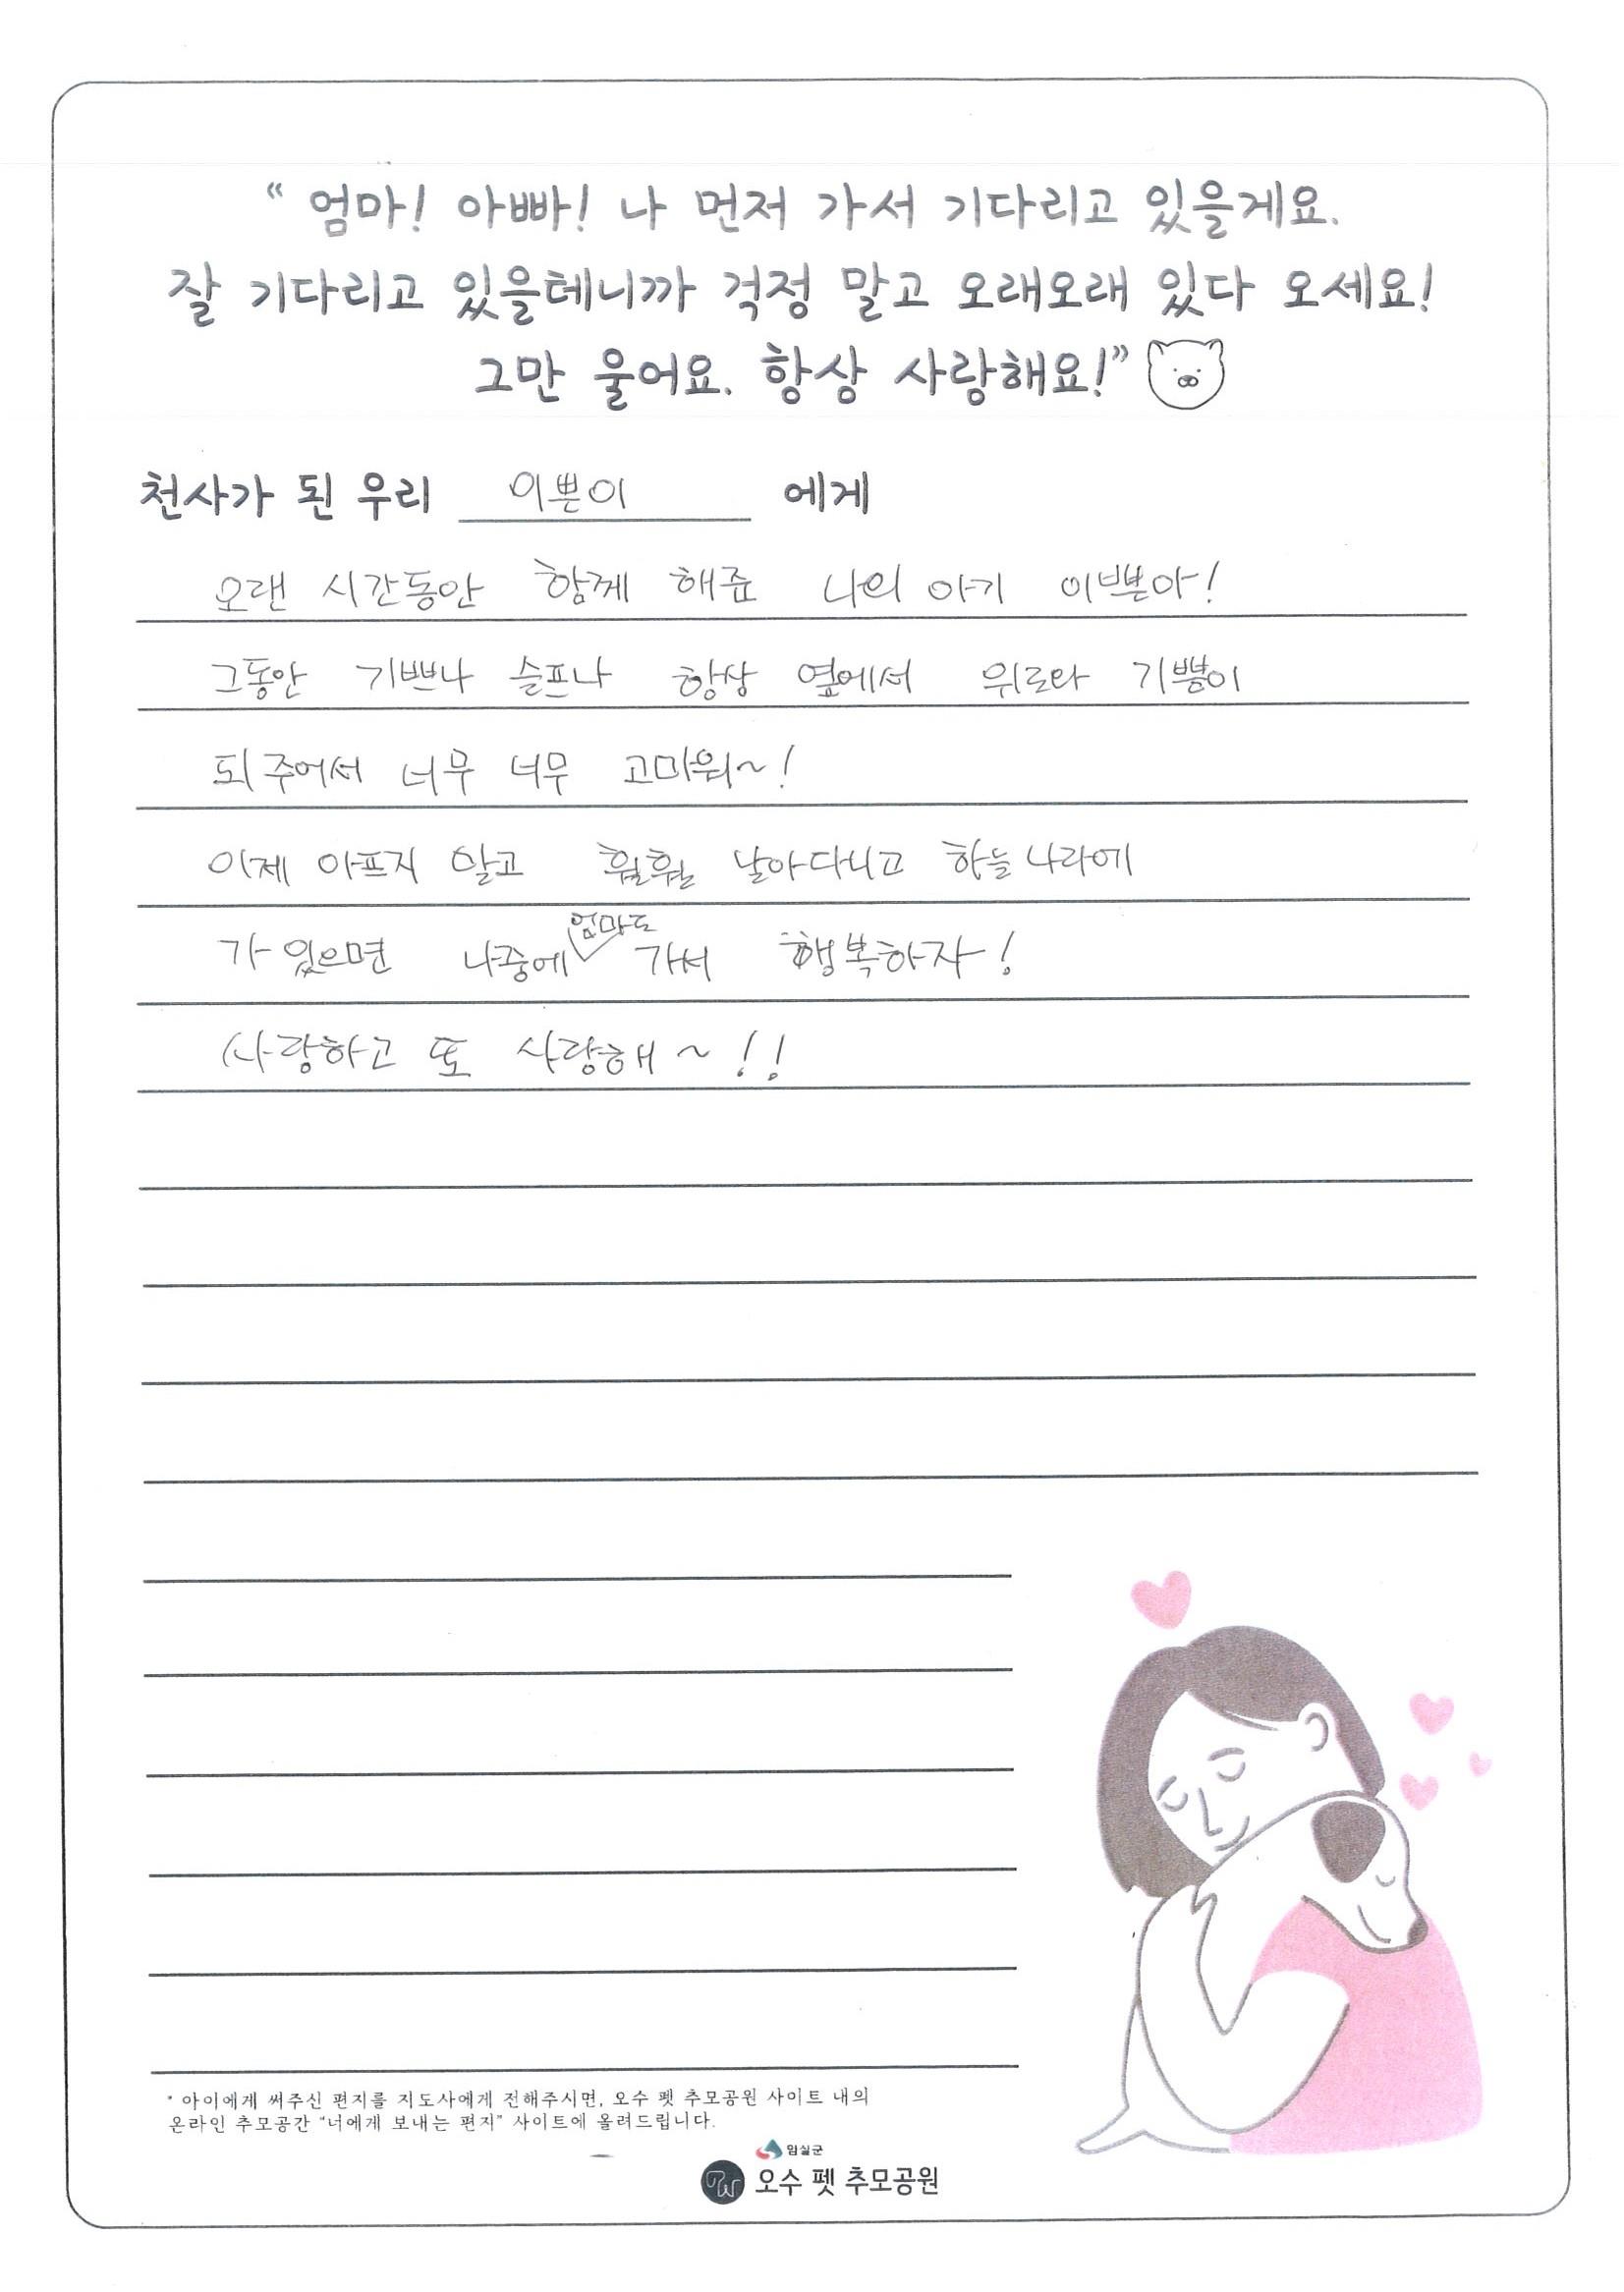 “ 엄마! 아빠! 나 먼저 가서 기다리고 있을게요.
잘 기다리고 있을테니까 걱정 말고 오래오래 있다 오세요!
그만 울어요. 항상 사랑해요!”
천사가 된 우리 이쁜이 에게
오랜 시간동안 함께 해준 나의 아기 이쁜아!
그동안 기쁘나 슬프나 항상 옆에서 위로와 기쁨이
되주어서 너무 너무 고마워~!
이제 아프지 말고 훨훨 날아다니고 하늘나라에
가 있으면 나중에 엄마도 가서 행복하자!
사랑하고 또 사랑해~!!
* 아이에게 써주신 편지를 지도사에게 전해주시면, 오수 펫 추모공원 사이트 내의
온라인 추모공간 "너에게 보내는 편지" 사이트에 올려드립니다.
임실군
PW 오수 펫 추모공원